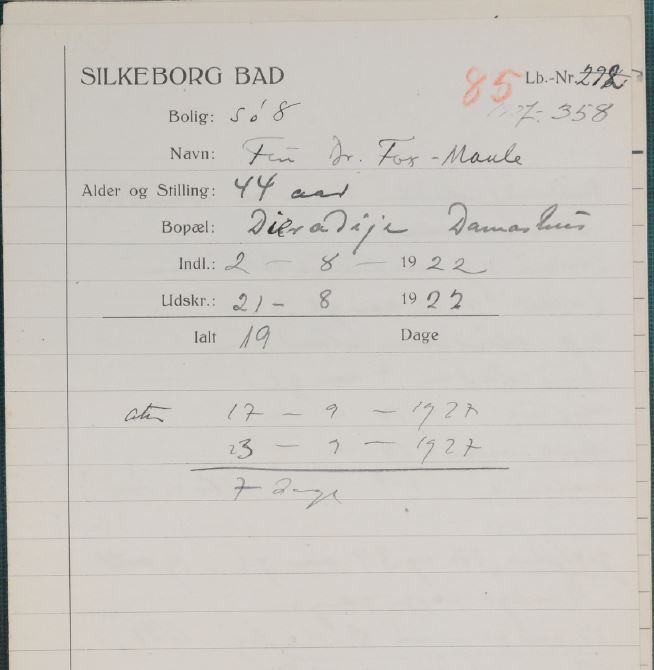 SILKEBORG BAD 85 Lb.-Nr. 292
27- 358
Bolig: Sö 8
Navn: Fru Dr. Fox-Maule
Alder og Stilling: 44 aar
Bopæl: Damaskus
Indl.: 2 - 8 - 1922
Udskr.: 21- 8 1922
Ialt 19 Dage
17 - 9 - 1927
23 - 9 - 1927
7 Dage